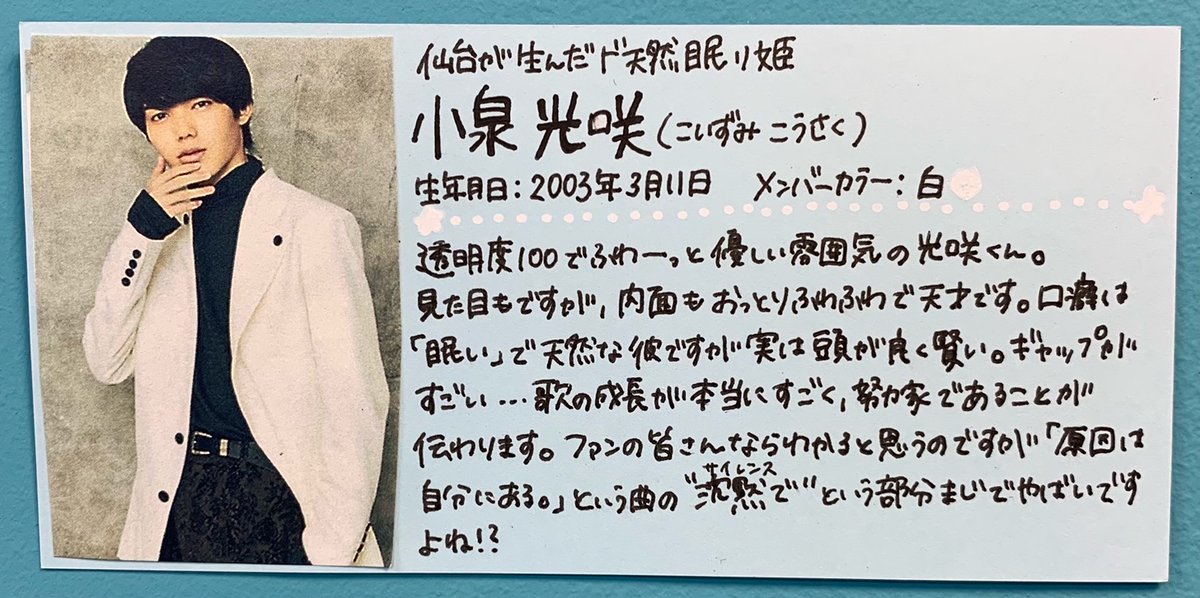 仙台が生んだド天然眠り姫
小泉光咲(こいずみ こうさく)
生年月日:2003年3月11日 メンバーカラー:白
透明度100でふわーっと優しい雰囲気の光咲くん。
見た目もですが、内面もおっとりふわふわで天才です。口癖は
「眠い」で天然な彼ですが実は頭が良く賢い。ギャップが
すごい…歌の成長が本当にすごく、努力家であることが
伝わります。ファンの皆さんならわかると思うのですが「原因は
サイレンス
自分にある。」という曲の"沈黙で"という部分まじでやばいです
よね!?